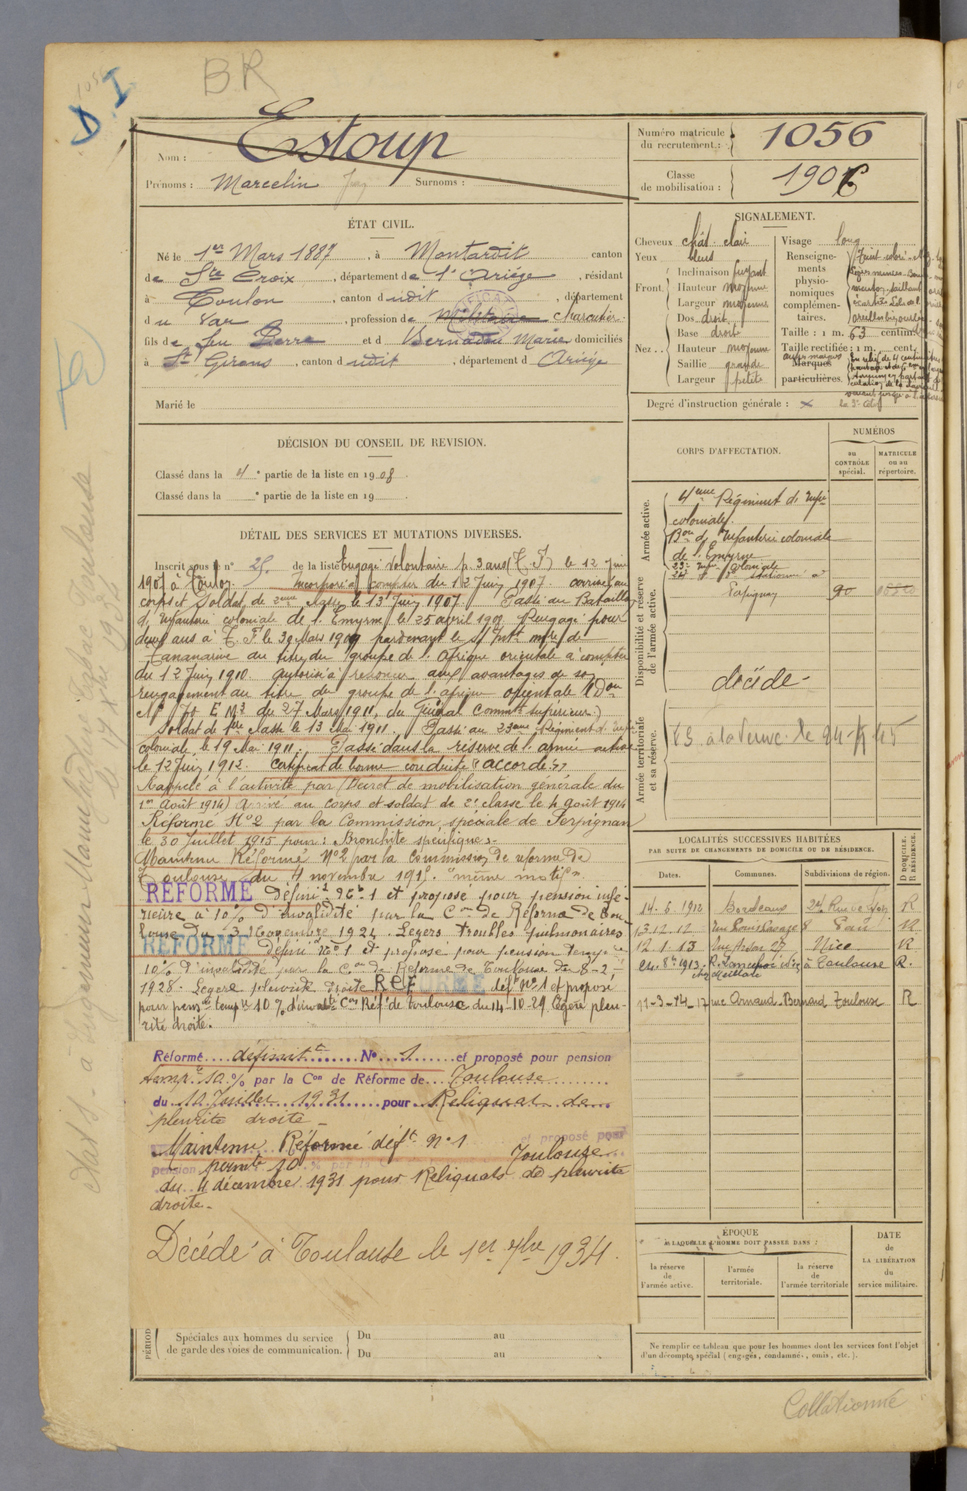 BR
D.I
Nom : Estoup
Prénoms : Marcelin Surnoms :
Numéro matricule du recrutement : 1056
Classe de mobilisation : 1906
ÉTAT CIVIL.
Né le 1er Mars 1887, à Montardit canton
de Ste Croix, département de l'Ariège, résidant
à Toulon, canton dudit, département
du Var, profession de Militaire charcutier
fils de feu Pierre et d Bernadou Marie domiciliés
à St Girons, canton dudit, département d Ariège
Marié le
SIGNALEMENT.
Cheveux chât. clair
Yeux bleus
Front. Inclinaison fuyant
Hauteur moyenne
Largeur moyenne
Nez.. Dos droit
Base droit
Hauteur moyenne
Saillie grande
Largeur petite
Visage long
Renseignements physionomiques complémentaires.
Taille : 1 m. 63 centim.
Taille rectifiée : 1 m. cent.
Marques particulières.
Degré d'instruction générale : x
DÉCISION DU CONSEIL DE REVISION.
Classé dans la 4e partie de la liste en 1908.
Classé dans la e partie de la liste en 19 .
DÉTAIL DES SERVICES ET MUTATIONS DIVERSES.
Inscrit sous le n° 25. de la liste Engagé volontaire p. 3 ans (T. I) le 12 Juin
1907 à Toulon. Incorporé à compter du 12 Juin 1907. arrivé au
corps et soldat de 2eme classe le 13 Juin 1907 Passé au Bataillon
d'Infanterie coloniale de l'Emyrne le 25 avril 1909 Rengagé pour
deux ans à T. I le 30 Mars 1909 par devant le s/Intt mre de
Tananarive au titre du groupe de l'Afrique orientale à compter
du 12 Juin 1910. Autorisé à renoncer aux avantages de son
rengagement au titre du groupe de l'afrique orientale (Don
No 70 E M3 du 27 Mars 1911, du Général Commt supérieur)
Soldat de 1ere classe le 13 Mai 1911. Passé au 23eme Régiment d'Infie
coloniale le 19 Mai 1911. Passé dans la réserve de l'armée active
le 12 Juin 1912. Certificat de bonne conduite "accordé"
Rappelé à l'activité par (Décret de mobilisation générale du
1er Août 1914) Arrivé au corps et soldat de 2e classe le 4 août 1914
Réformé No 2 par la Commission spéciale de Perpignan
le 30 Juillet 1915 pour : Bronchite spécifique.
Maintenu Réformé No 2 par la Commission de réforme de
Toulouse du 4 novembre 1915. "même motif".
RÉFORMÉ Défini t No 1 et proposé pour pension infé-
rieure à 10% d'invalidité par la Con de Réforme de Tou-
louse du 13 Novembre 1924. Légers troubles pulmonaires
RÉFORMÉ définit No 1 et proposé pour pension tempre
10% d'invalidité par la Con de Réforme de Toulouse du 8-2-
1928. Légère pleurite droite RÉFORMÉ déft No 1 et proposé
pour pension tempre 10% d'invalté Con Réfe de Toulouse du 14-10-29 Légère pleu-
rite droite.
Réformé définitt No 1 et proposé pour pension
temp. 10 % par la Con de Réforme de Toulouse
du 10 Juillet 1931 pour Reliquat de
pleurite droite
Maintenu Réformé déft No 1 et proposé pour
pension permte 10 % par la Toulouse
du 4 décembre 1931 pour Reliquats de pleurite
droite.
Décédé à Toulouse le 1er 7bre 1934.
Spéciales aux hommes du service
de garde des voies de communication.
Du au
Du au
CORPS D'AFFECTATION.
NUMÉROS
au CONTRÔLE spécial.
MATRICULE ou au répertoire.
Armée active.
4eme Régiment d'Infie
coloniale.
Bon d'Infanterie coloniale
de l'Emyrne
Disponibilité et réserve de l'armée active.
Perpignan 90
décédé
Armée territoriale et sa réserve.
LOCALITÉS SUCCESSIVES HABITÉES
PAR SUITE DE CHANGEMENTS DE DOMICILE OU DE RÉSIDENCE.
Dates. Communes. Subdivisions de région. D DOMICILE. R RÉSIDENCE.
14-6-1912 Bordeaux R
12.1.13 Nice R
24-8bre 1913 à Toulouse R.
rue Arnaud-Bernard Toulouse R
ÉPOQUE
À LAQUELLE L'HOMME DOIT PASSER DANS :
la réserve de l'armée active.
l'armée territoriale.
la réserve de l'armée territoriale
DATE de LA LIBÉRATION du service militaire.
Ne remplir ce tableau que pour les hommes dont les services font l'objet
d'un décompte spécial (engagés, condamnés, omis, etc.).
Collationné